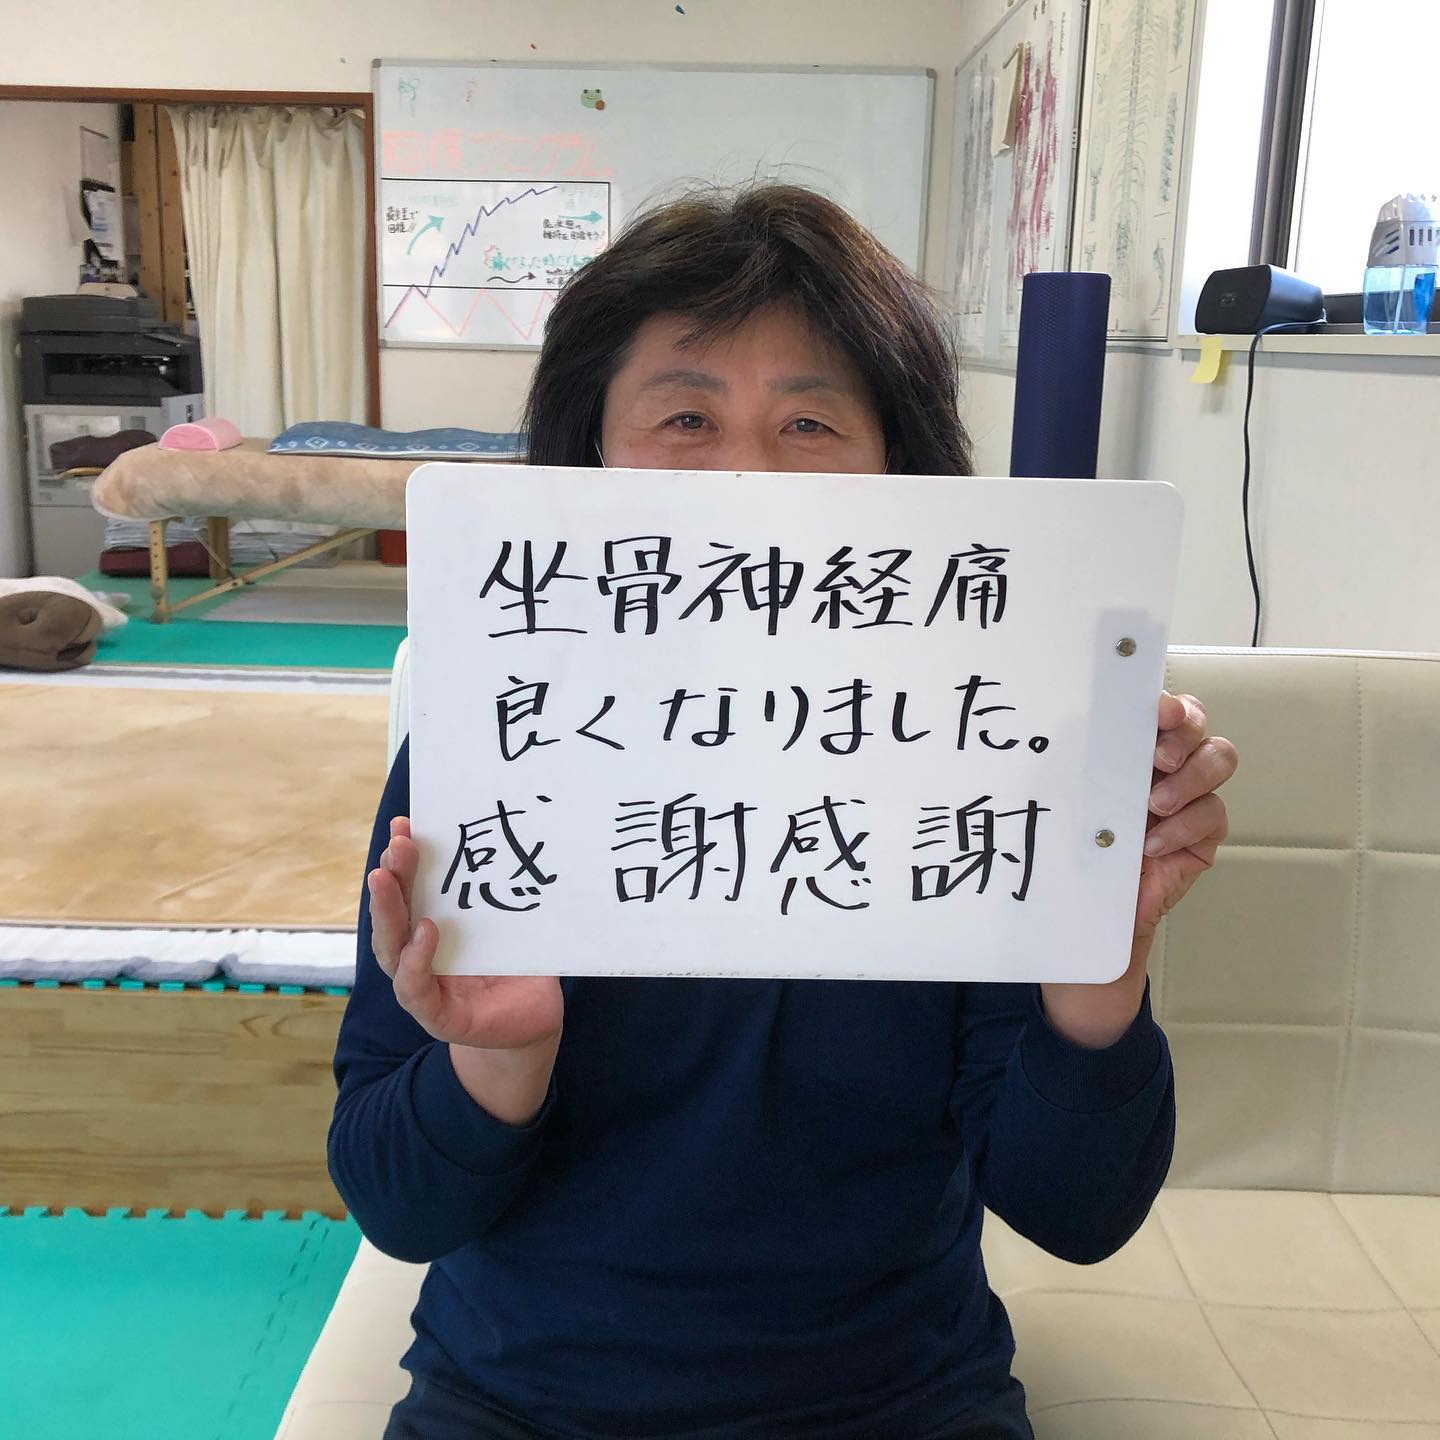 回復プログラム
最短で
回復!!
坐骨神経痛
良くなりました。
感謝感謝